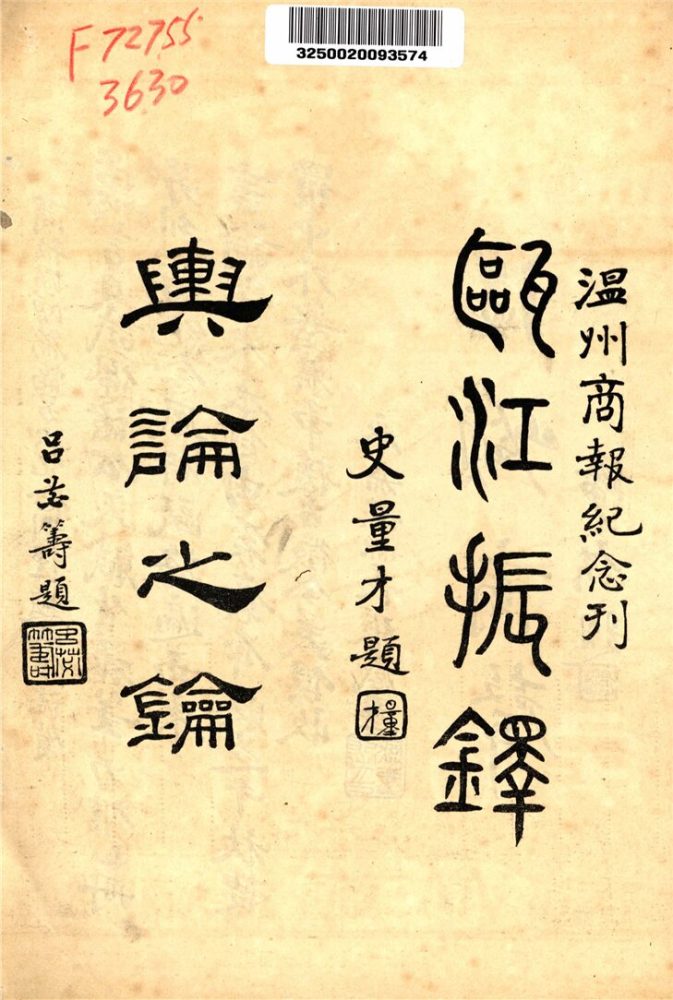 F72755
3630
3250020093574
溫州商報紀念刊
甌江振鐸
史量才題
量才
輿論之鑰
呂苾籌題
呂苾籌